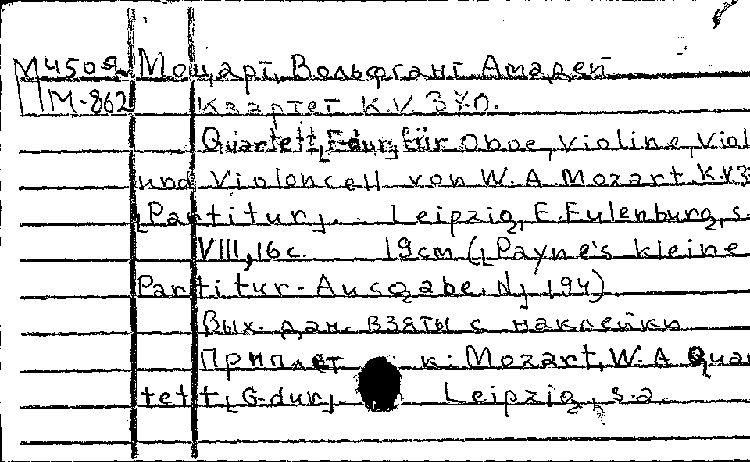 М4502 Моцарт, Вольфганг Амадей
ПМ-862 Квартет K.V. 370.
Quartett, F dur, für Oboe, Violine, Viol
und Violoncell von W.A. Mozart. K.V.3
[Partitur]. Leipzig, E. Eulenburg, s.
VIII, 16 c. 19 cm ([Payne's kleine
Partitur-Ausgabe. N] 194).
Вых. дан. взяты с наклейки
Приплет к: Mozart, W.A. Quar
tett, [G-dur] Leipzig, s.a.